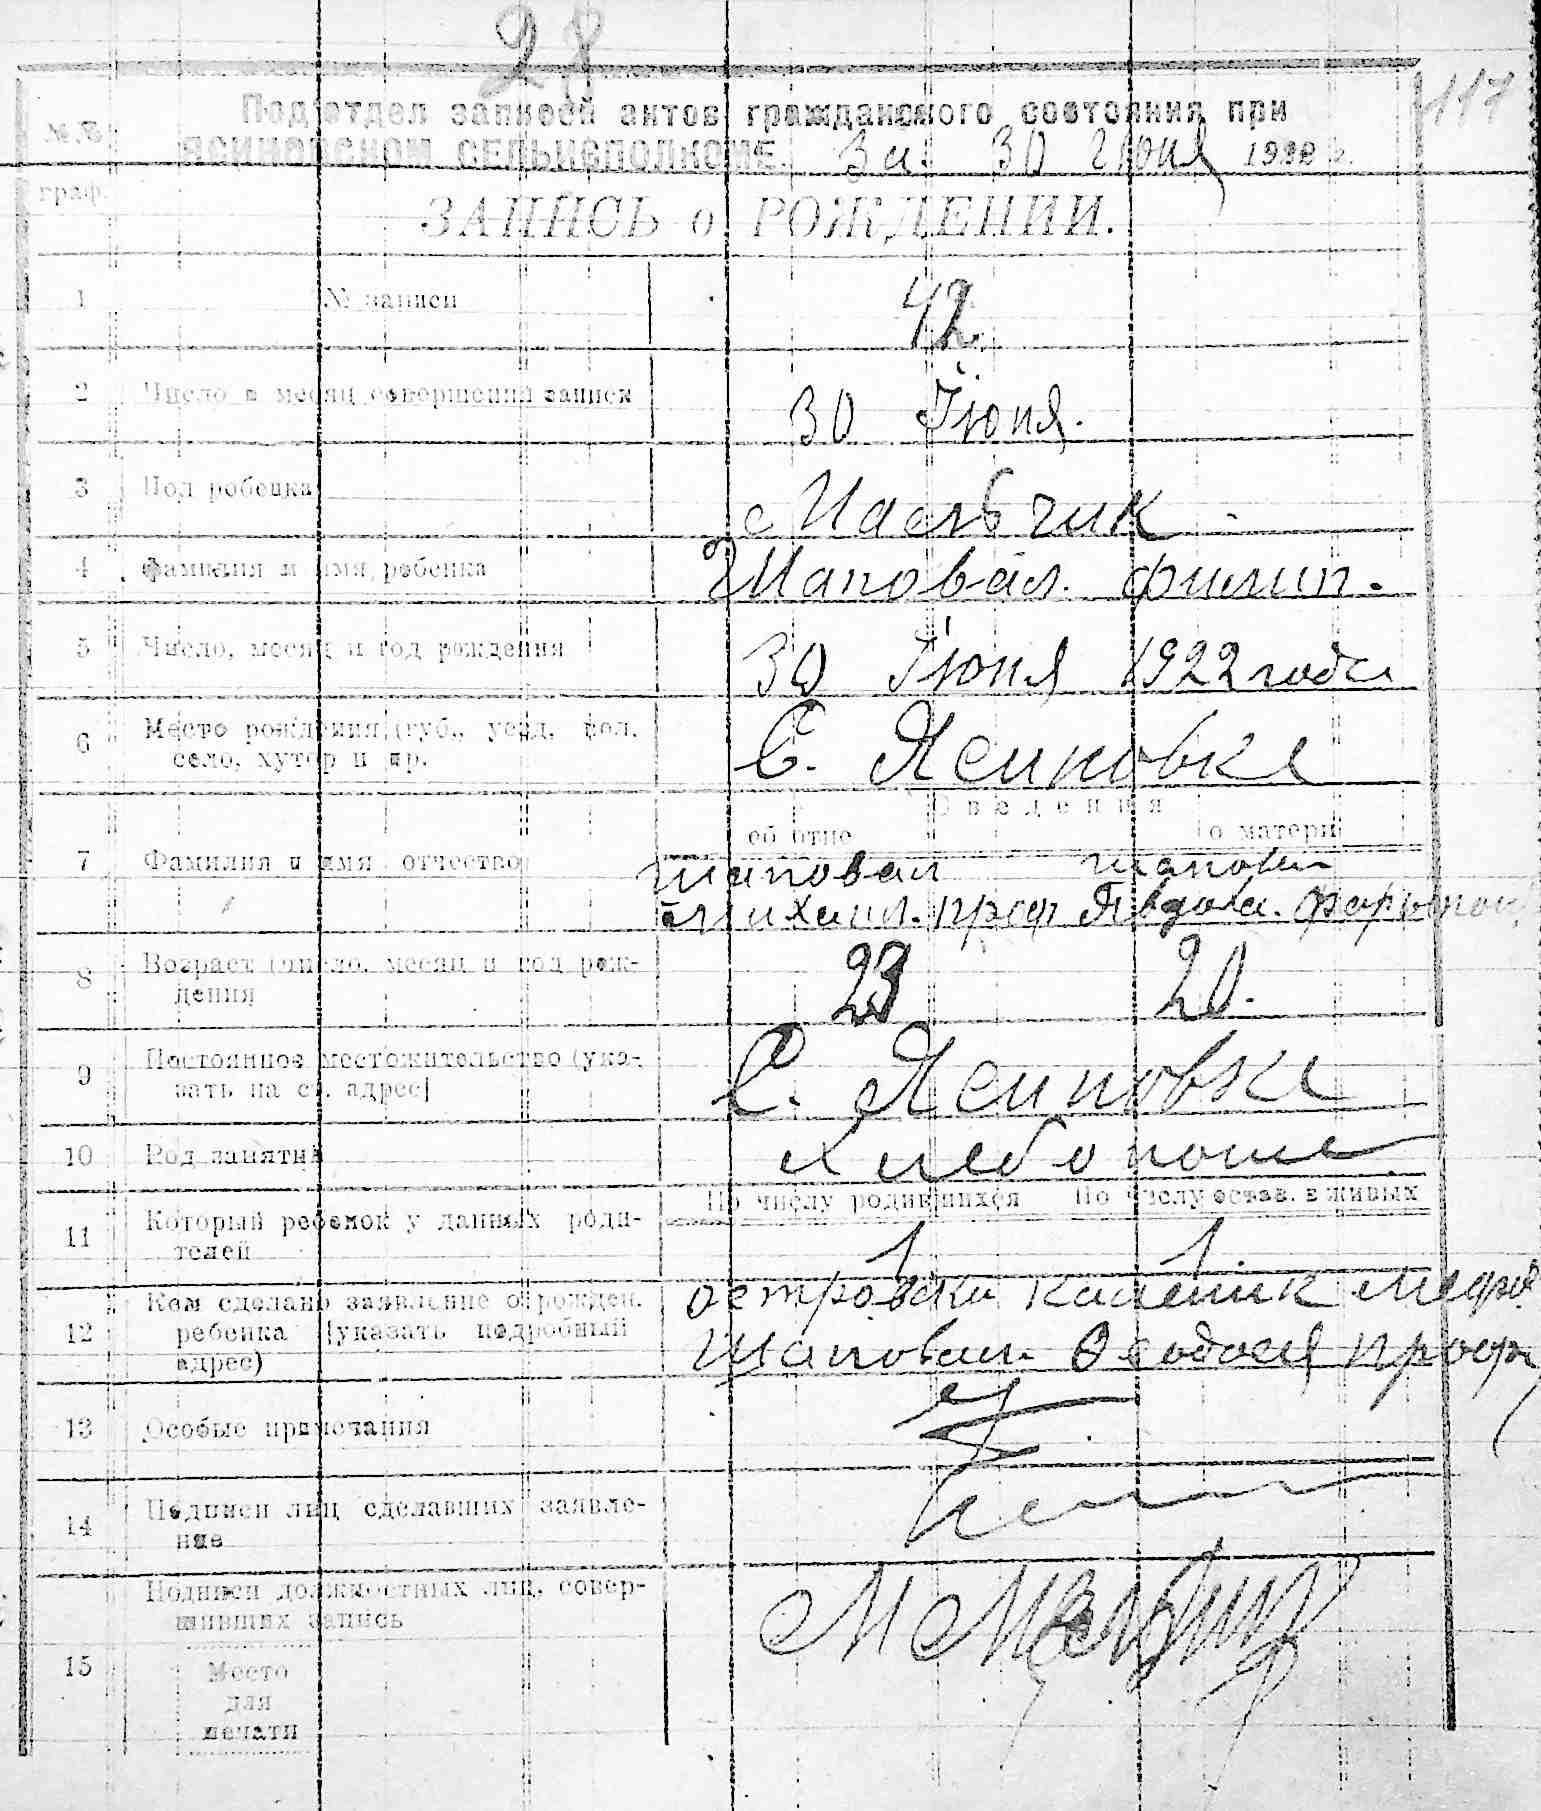 28
117
Подотдел записей актов гражданского состояния при
Ясиновском сельисполкоме. За 30 Июня 1922 г.
№№
граф.
ЗАПИСЬ о РОЖДЕНИИ.
1 № записи 42
2 Число и месяц совершения записи 30 Іюня.
3 Пол ребенка Мальчик
4 Фамилия и имя ребенка Шаповал. Филип.
5 Число, месяц и год рождения 30 Іюня 1922 года
6 Место рождения (губ., уезд, вол.
село, хутор и др. С. Ясиновка
Сведения
об отце о матери
7 Фамилия и имя отчество Шаповал Шаповал
Михаил. Проф Явдоха.
8 Возраст (число, месяц и год рож-
дения 23 20.
9 Постоянное местожительство (ука-
зать на ст. адрес) С. Ясиновка
10 Род занятия Хлебопаше
По числу родившихся По числу остав. в живых
11 Который ребенок у данных роди-
телей 1 1
12 Кем сделано заявление о рожден.
ребенка (указать подробный
адрес)
островски Каленик
Шаповал Ѳеодосей Проф
13 Особые примечания
14 Подписи лиц сделавших заявле-
ние
Подписи должностных лиц, совер-
шивших запись
15 Место
для
печати